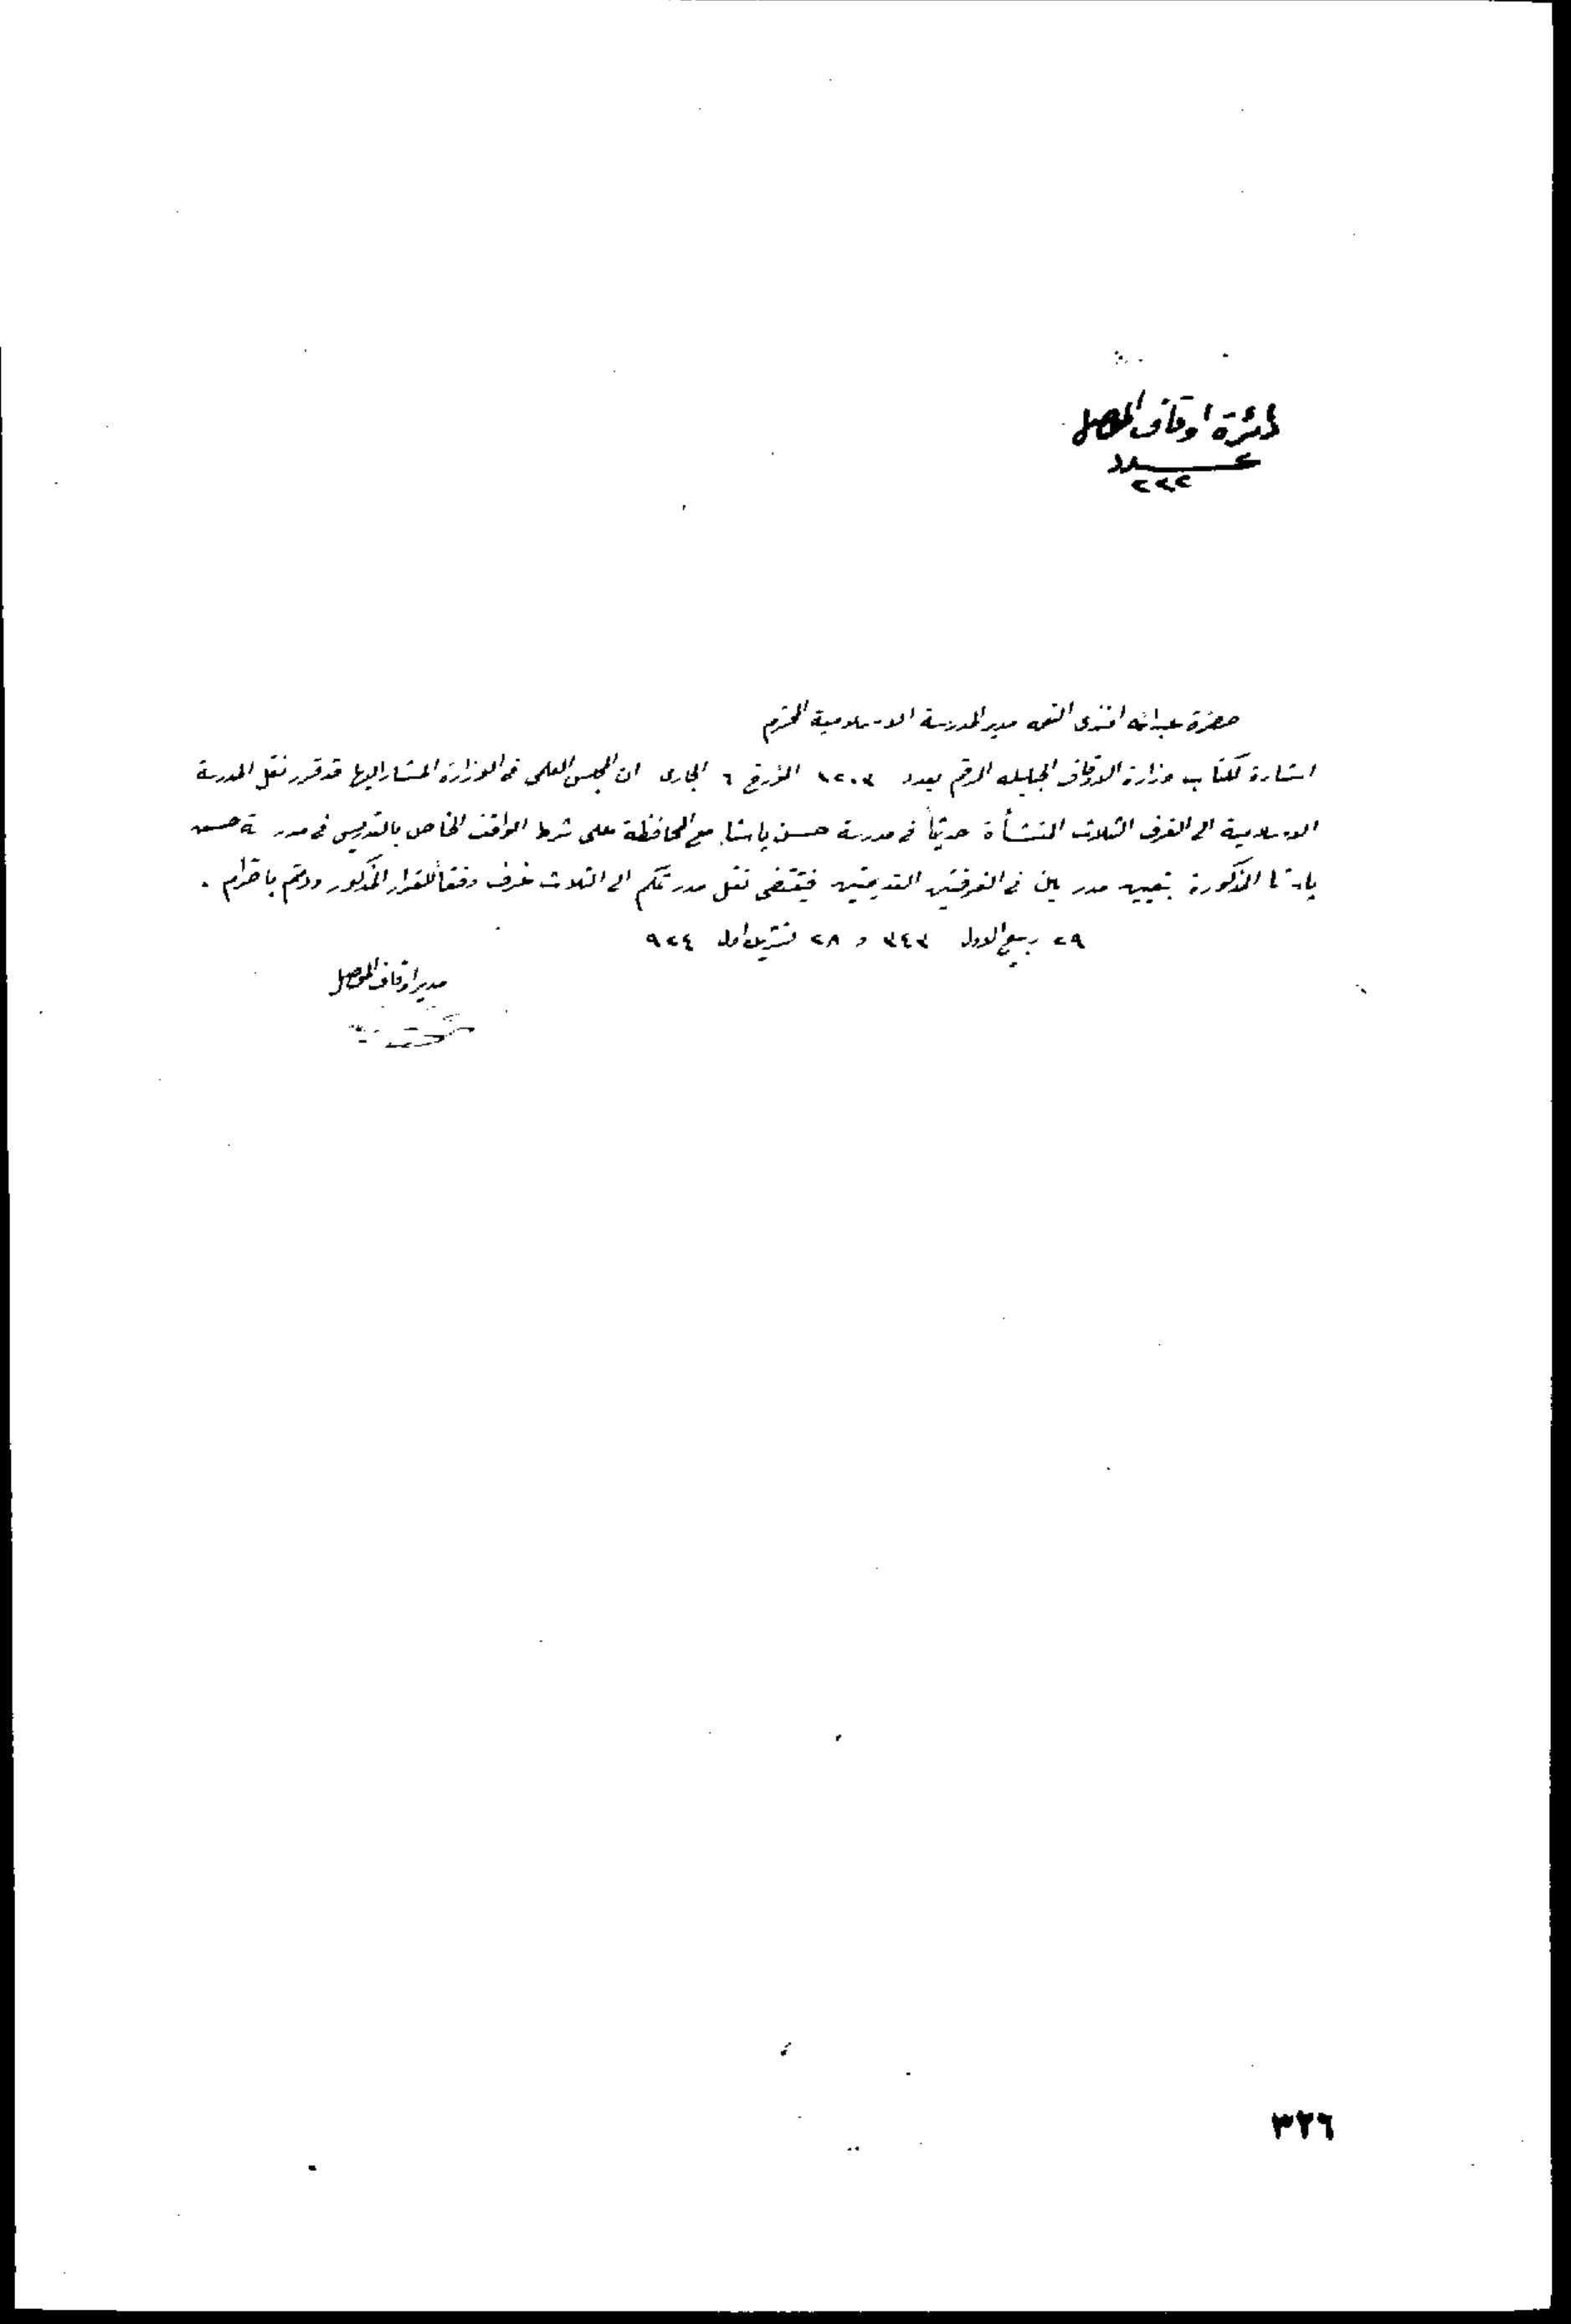 دائرة اوقاف الموصل
عدد
٢٩٢
حضرة عبدالله افندى النعمه مدير المدرسة الاسلامية المحترم
اشارة لكتاب وزارة الاوقاف الجليله المرقم بعدد ١٢٠٣ المؤرخ ٦ الجارى ان المجلس العلمى فى الوزارة المشار اليها قد قرر نقل المدرسة
الاسلامية الى الغرف الثلاث المنشأة حديثاً فى مدرسة حسن باشا مع المحافظة على شرط الواقف الخاص بالتدريس فى مدرسة حسن
باشا المذكورة بتعيين مدرسين فى الغرفتين القديمتين فيقتضى نقل مدرستكم الى الثلاث غرف وفقاً للقرار المذكور ودمتم باحترام .
٢٩ ربيع الاول ٣٤٣ و ٢٨ تشرين اول ٩٢٤
مدير اوقاف الموصل
٣٢٦